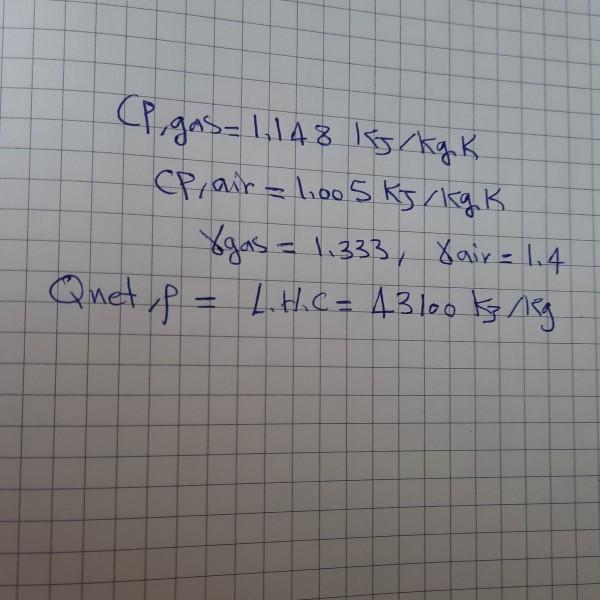 CP,gas = 1.148 KJ/kg.K
CP,air = 1.005 KJ/kg.K
γgas = 1.333, γair = 1.4
Qnet,p = L.H.C = 43100 KJ/Kg